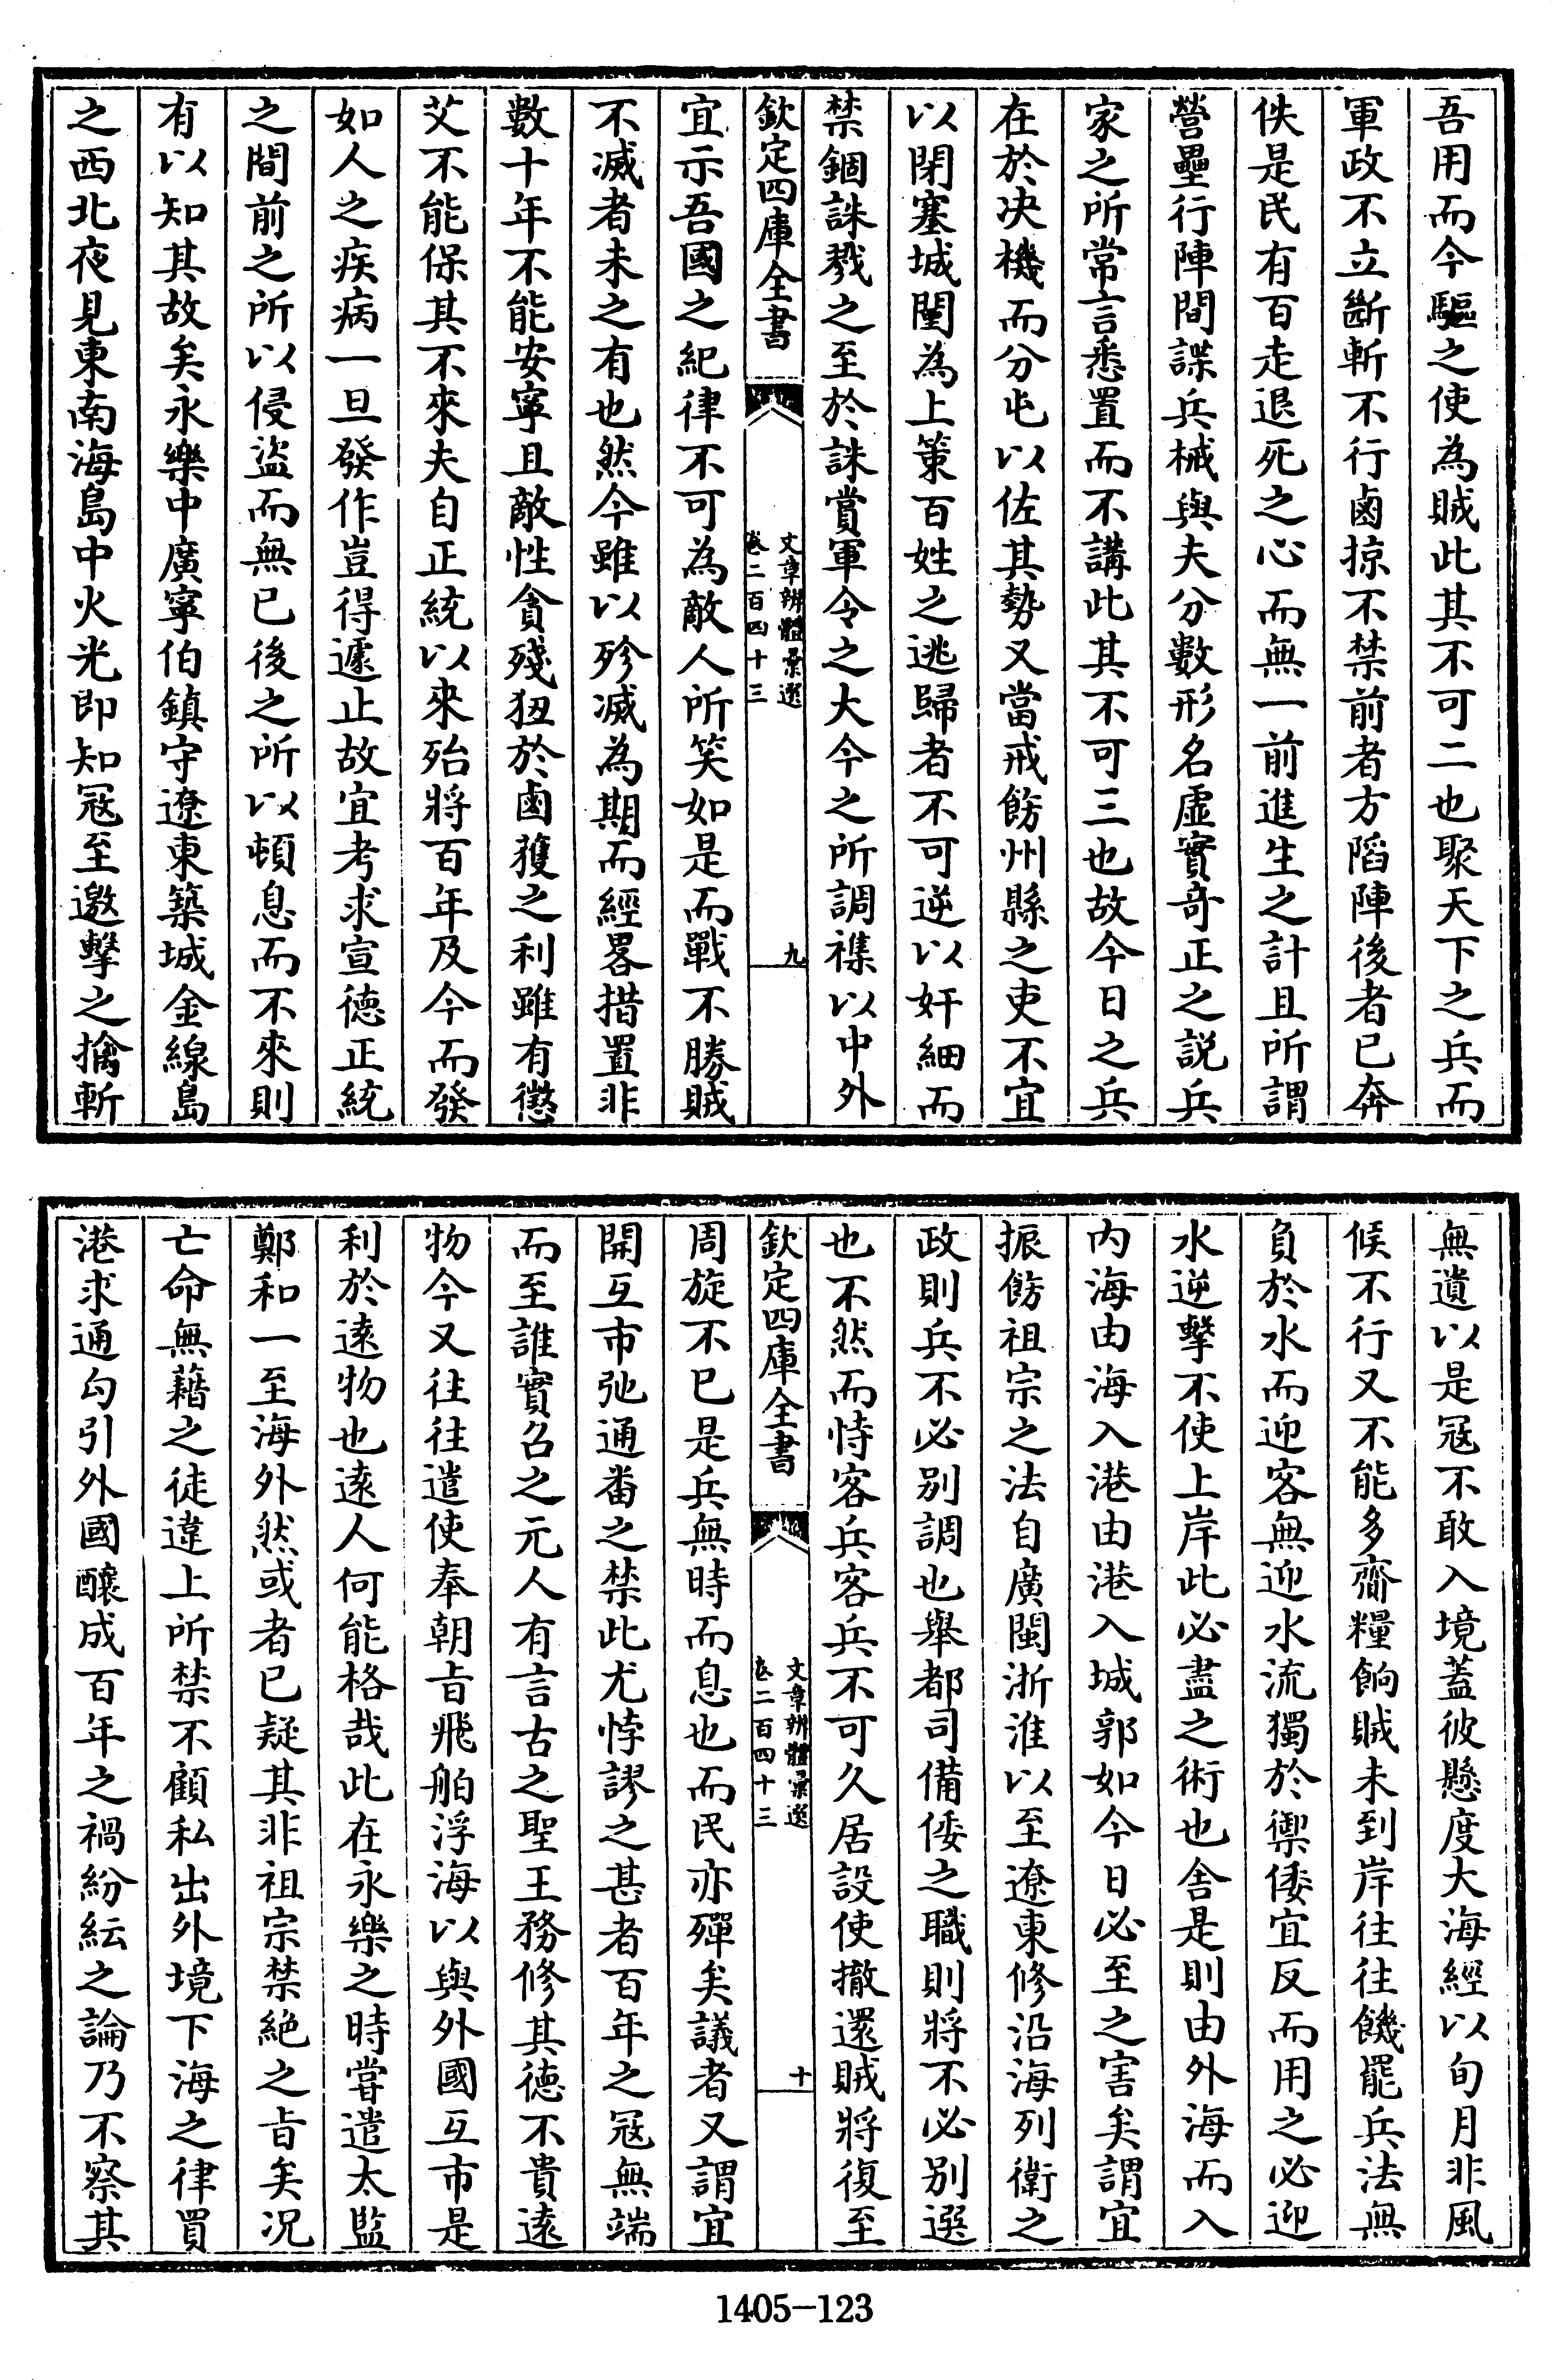 吾用而今驅之使為賊此其不可二也聚天下之兵而
軍政不立斷斬不行鹵掠不禁前者方陷陣後者已奔
佚是民有百走退死之心而無一前進生之計且所謂
營壘行陣間諜兵械與夫分數形名虛實奇正之説兵
家之所常言悉置而不講此其不可三也故今日之兵
在於决機而分屯以佐其勢又當戒飭州縣之吏不宜
以閉塞城闉為上策百姓之逃歸者不可逆以奸細而
禁錮誅戮之至於誅賞軍令之大今之所調襍以中外
欽定四庫全書
文章辨體彙選
卷二百四十三
九
宜示吾國之紀律不可為敵人所笑如是而戰不勝賊
不滅者未之有也然今雖以殄滅為期而經畧措置非
數十年不能安寧且敵性貪殘狃於鹵獲之利雖有懲
艾不能保其不來夫自正統以來殆將百年及今而發
如人之疾病一旦發作豈得遽止故宜考求宣德正統
之間前之所以侵盜而無已後之所以頓息而不來則
有以知其故矣永樂中廣寧伯鎮守遼東築城金線島
之西北夜見東南海島中火光即知冦至邀擊之擒斬
無遺以是冦不敢入境蓋彼懸度大海經以旬月非風
候不行又不能多齎糧餉賊未到岸往往饑罷兵法無
負於水而迎客無迎水流獨於禦倭宜反而用之必迎
水逆擊不使上岸此必盡之術也舍是則由外海而入
内海由海入港由港入城郭如今日必至之害矣謂宜
振飭祖宗之法自廣閩浙淮以至遼東修沿海列衛之
政則兵不必別調也舉都司備倭之職則將不必別選
也不然而恃客兵客兵不可久居設使撤還賊將復至
欽定四庫全書
文章辨體彙選
卷二百四十三
十
周旋不已是兵無時而息也而民亦殫矣議者又謂宜
開互市弛通番之禁此尤悖謬之甚者百年之冦無端
而至誰實召之元人有言古之聖王務修其徳不貴遠
物今又往往遣使奉朝㫖飛舶浮海以與外國互市是
利於遠物也遠人何能格哉此在永樂之時嘗遣太監
鄭和一至海外然或者已疑其非祖宗禁絶之㫖矣况
亡命無藉之徒違上所禁不顧私出外境下海之律買
港求通勾引外國釀成百年之禍紛紜之論乃不察其
1405-123